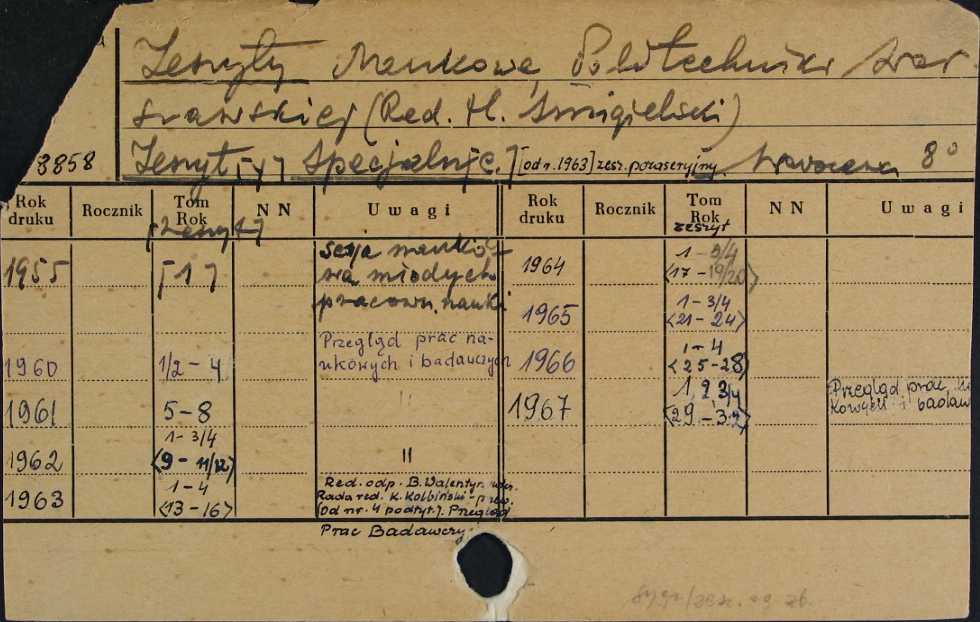 Zeszyty Naukowe Politechniki War
szawskiej (Red. H. Śmigielski)
8858
Zeszyt[y] Specjaln[e.] [od n. 1963] zesz. pozaseryjny. Warszawa 8°
Rok druku Rocznik Tom Rok NN Uwagi Rok druku Rocznik Tom Rok NN Uwagi
[zeszyt] zeszyt
1955 [1] Sesja nauko-
wa młodych
pracown. nauki
1960 1/2 - 4 Przegląd prac na-
ukowych i badawczych
1961 5-8 "
1962 1-3/4
<9-11/12> "
1963 1-4
<13-16> Red. odp. B. Walentyn.
Rada red. K. Kolbiński - przew.
[Od nr. 4 podtyt.]. Przegląd
Prac Badawczy
1964 1-3/4
<17-19/20>
1965 1-3/4
<21-24>
1966 1-4
<25-28>
1967 1, 2, 3/4
<29-32> Przegląd prac
kowych i badaw